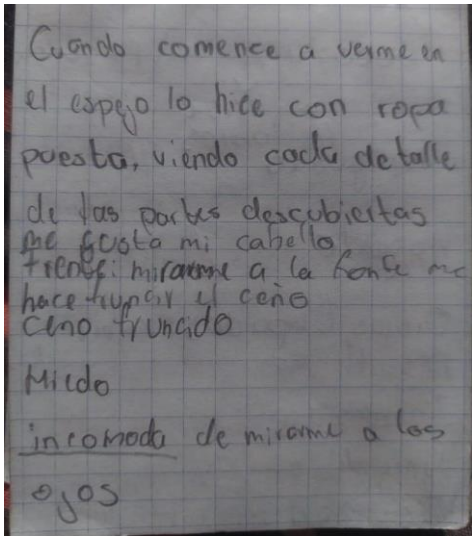 Cuando comence a verme en
el espejo lo hice con ropa
puesta, viendo cada detalle
de las partes descubiertas
me gusta mi cabello
frente: mirarme a la frente me
hace fruncir el ceño
ceno fruncido
Miedo
incomoda de mirarme a los
ojos